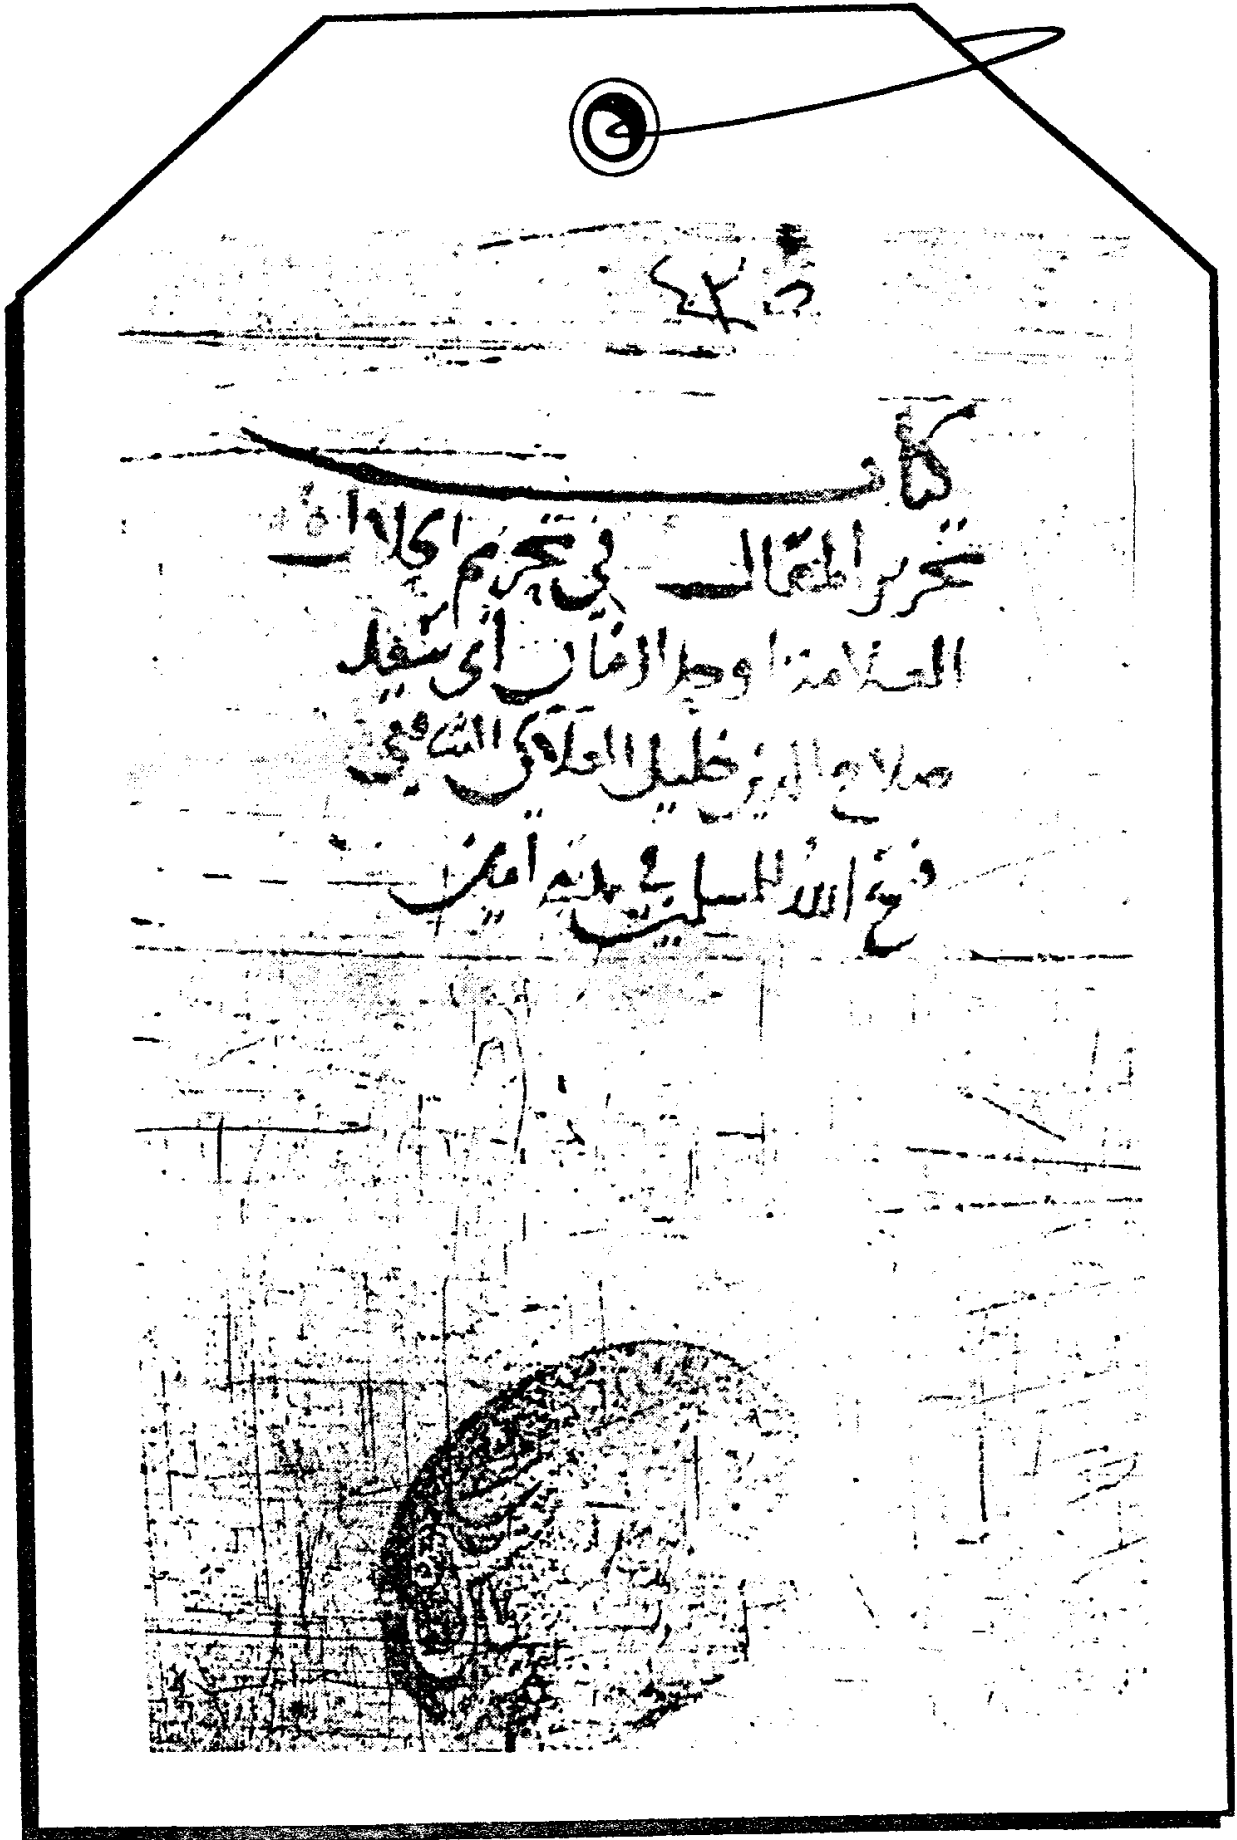 كتاب
تحرير المقال في تحريم الحلال
العلامة اوحد الزمان أبي سعيد
صلاح الدين خليل العلائي الشافعي
فسح الله للمسلمين في مدته امين